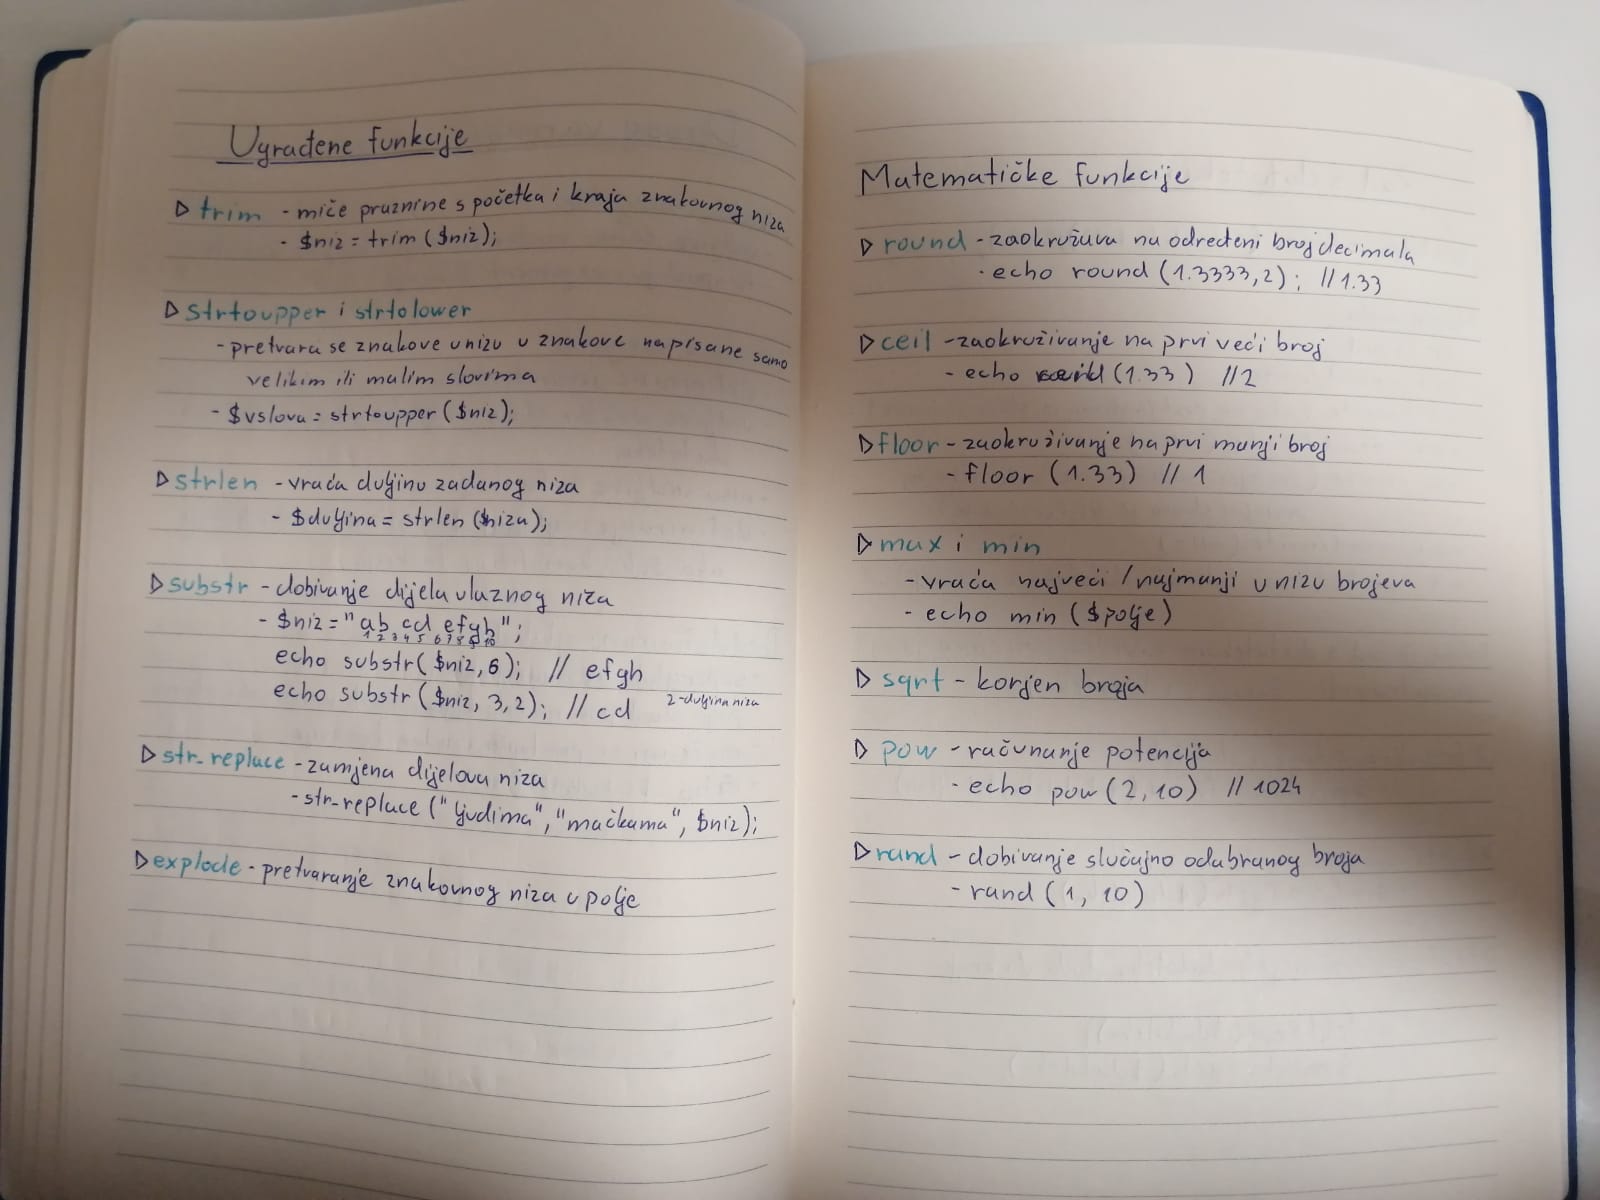 Ugrađene funkcije
▷ trim - miče praznine s početka i kraja znakovnog niza
- $niz = trim ($niz);
▷ strtoupper i strtolower
- pretvara se znakove u nizu u znakove napisane samo
velikim ili malim slovima
- $vslova = strtoupper ($niz);
▷ strlen - vraća duljinu zadanog niza
- $duljina = strlen ($niza);
▷ substr - dobivanje dijela ulaznog niza
- $niz = "ab cd efgh";
1 2 3 4 5 6 7 8 9 10
echo substr( $niz, 6); // efgh
echo substr ( $niz, 3, 2); // cd 2-duljina niza
▷ str_replace - zamjena dijelova niza
- str_replace ("ljudima", "mačkama", $niz);
▷ explode - pretvaranje znakovnog niza u polje
Matematičke funkcije
▷ round - zaokružuva na određeni broj decimala
- echo round (1.3333, 2); // 1.33
▷ ceil - zaokruživanje na prvi veći broj
- echo (1.33) // 2
▷ floor - zaokruživanje na prvi manji broj
- floor (1.33) // 1
▷ max i min
- vraća najveći / najmanji u nizu brojeva
- echo min ($polje)
▷ sqrt - korjen broja
▷ pow - računanje potencija
- echo pow (2, 10) // 1024
▷ rand - dobivanje slučajno odabranog broja
- rand (1, 10)